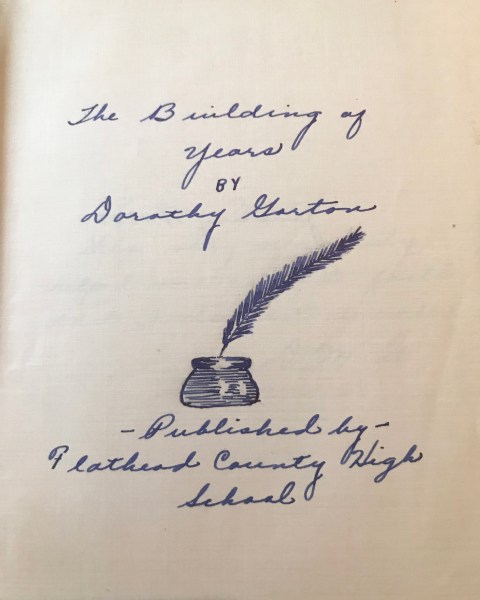 The Building of
Years
BY
Dorothy Gorton
-Published by-
Flathead County High
School